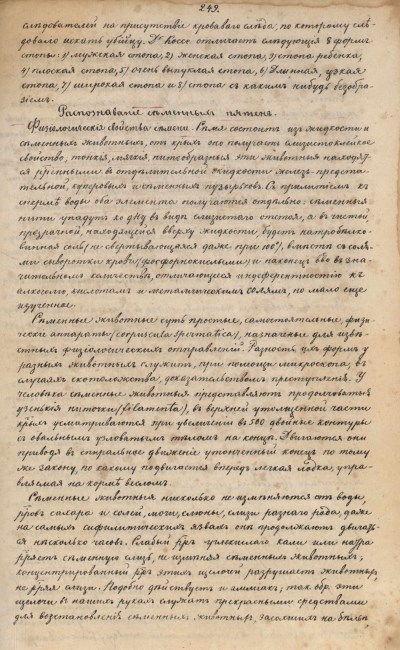 249.
слѣдователей на присутствіе кроваваго слѣда, по которому слѣ
довало искать убійцу. Dr Коссо отличаетъ слѣдующія 8 формъ
стопы: 1) мужская стопа, 2) женская стопа, 3) стопа ребенка,
4) плоская стопа, 5) очень выпуклая стопа, 6) длинная, узкая
стопа, 7) широкая стопа и 8) стопа съ какимъ нибудь безобра
зіемъ.
Распознаваніе сѣменныхъ пятенъ.
Физіологическія свойства сѣмени. Сѣмя состоитъ изъ жидкости и
сѣменныхъ животныхъ, отъ крыхъ оно получаетъ слизистоклейкое
свойство, тонкія, мягкія, нитеобразныя эти животныя находят
ся въ отдѣлительной жидкости железъ предста
тельной, куперовыхъ и сѣменныхъ пузырьковъ. Съ прилитіемъ къ
спермѣ воды оба элемента получаются отдѣльно: сѣменныя
нити упадутъ ко дну въ видѣ слизистаго отстоя, а въ чистой,
прозрачной, находящейся вверху жидкости будетъ натробѣлко
винная соль (не свертывающаяся даже при 100°), вмѣстѣ съ соля
ми сыворотки крови (фосфорнокислыми) и наконецъ въ з
чительномъ количествѣ, отличающееся индеферентностію къ
алкоголю, кислотамъ и металлическимъ солямъ, но мало еще
изученное.
Сѣменныя животныя суть простые, самостоятельные, физи
ческіе аппараты (corpuscula spermatica), назначеные для извѣ
стныхъ физіологическихъ отправленій. Разность ихъ формъ у
разныхъ животныхъ служитъ, при помощи микроскопа, въ
случаяхъ скотоложства, доказательствомъ преступленія. У
человѣка сѣменныя животныя представляютъ продолговатыя
узенькія ниточки (filamenta), въ верхней утолщенной части
крыхъ усматриваются при увеличеніи въ 500 двойные контуры
съ овальнымъ узловатымъ тѣломъ на концѣ. Двигаются они
приводя въ спиральное движеніе утонченный конецъ по тому
же закону, по какому подвигается впередъ легкая лодка, упра
вляемая на кормѣ весломъ.
Сѣменныя животныя нисколько не измѣняются отъ воды,
сахара и солей, мочи, слюны, слизи разнаго рода, даже
на самыхъ сифилитическихъ язвахъ они продолжаютъ двигать
ся нѣсколько часовъ. Слабый углекислаго кали или натра
сѣменную слизь, не измѣняя сѣменныхъ животныхъ;
концентрированный этихъ щелочей разрушаетъ животныхъ,
не слизи. Подобно дѣйствуетъ и амміакъ; такъ обр. эти
щелочи въ нашихъ рукахъ служатъ прекрасными средствами
для возстановленія сѣменныхъ животныхъ, засохшихъ на бѣльѣ,